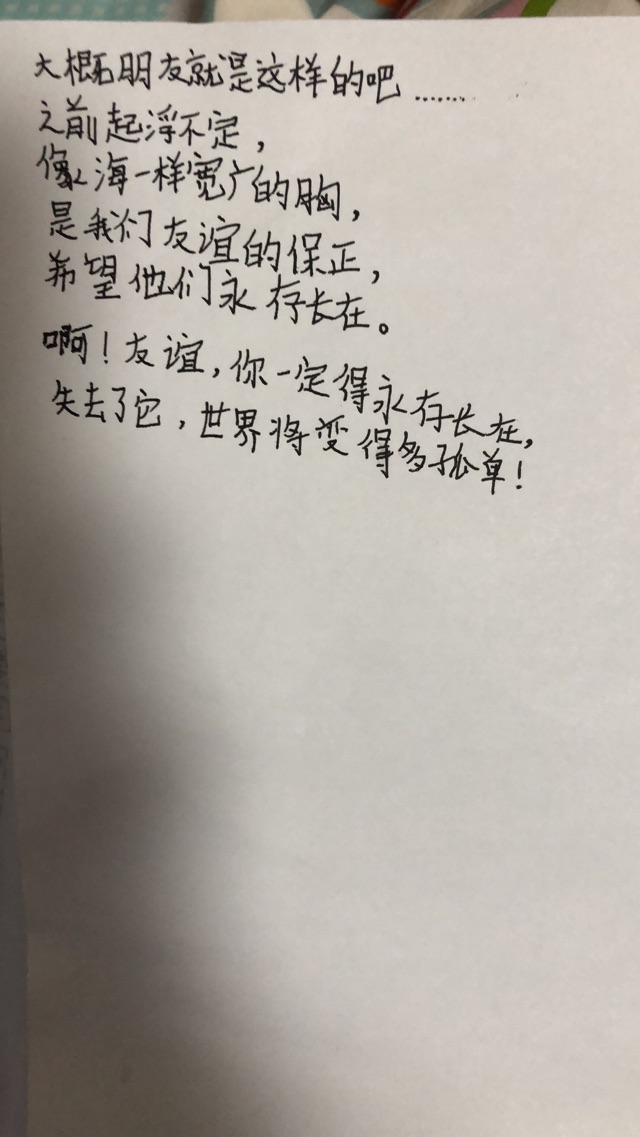 大概朋友就是这样的吧……
之前起浮不定，
像海一样宽广的胸，
是我们友谊的保正，
希望他们永存长在。
啊！友谊，你一定得永存长在，
失去了它，世界将变得多孤单！